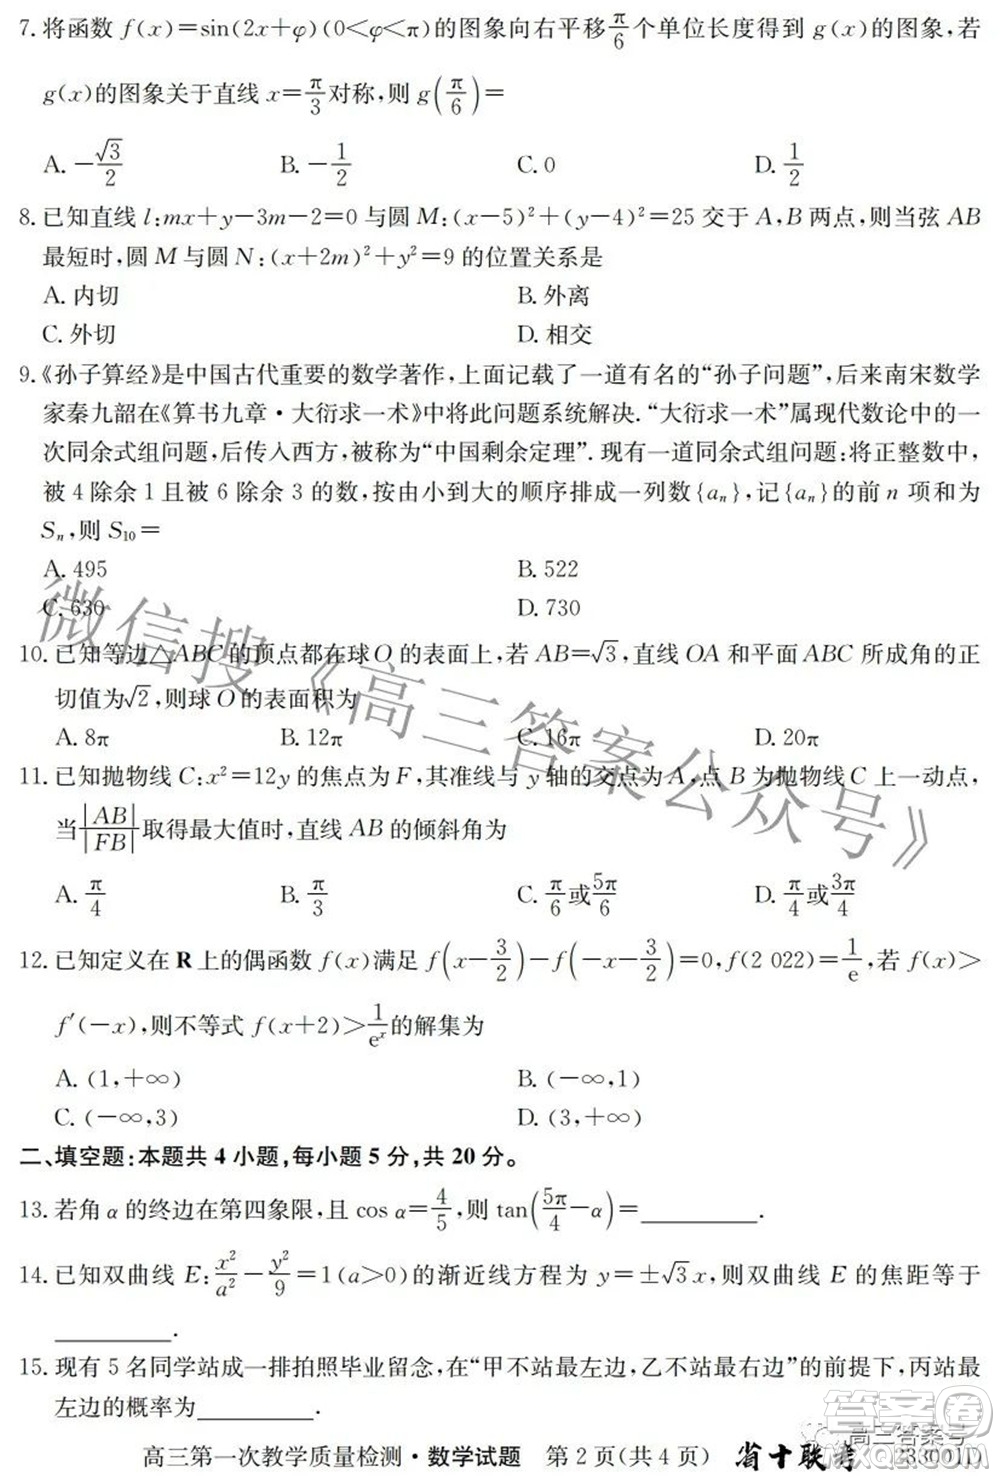 7. 将函数 f(x)=sin(2x+φ)(0<φ<π)的图象向右平移π/6个单位长度得到 g(x)的图象,若
g(x)的图象关于直线 x=π/3对称,则 g(π/6)=
A. -√3/2 B. -1/2 C. 0 D. 1/2
8. 已知直线 l:mx+y-3m-2=0 与圆 M:(x-5)²+(y-4)²=25 交于 A,B 两点,则当弦 AB
最短时,圆 M 与圆 N:(x+2m)²+y²=9 的位置关系是
A. 内切 B. 外离
C. 外切 D. 相交
9.《孙子算经》是中国古代重要的数学著作,上面记载了一道有名的“孙子问题”,后来南宋数学
家秦九韶在《算书九章·大衍求一术》中将此问题系统解决.“大衍求一术”属现代数论中的一
次同余式组问题,后传入西方,被称为“中国剩余定理”. 现有一道同余式组问题:将正整数中,
被 4 除余 1 且被 6 除余 3 的数,按由小到大的顺序排成一列数{aₙ},记{aₙ}的前 n 项和为
Sₙ,则 S₁₀=
A. 495 B. 522
C. 630 D. 730
10. 已知等边△ABC 的顶点都在球 O 的表面上,若 AB=√3,直线 OA 和平面 ABC 所成角的正
切值为√2,则球 O 的表面积为
A. 8π B. 12π C. 16π D. 20π
11. 已知抛物线 C:x²=12y 的焦点为 F,其准线与 y 轴的交点为 A,点 B 为抛物线 C 上一动点,
当|AB|/|FB|取得最大值时,直线 AB 的倾斜角为
A. π/4 B. π/3 C. π/6或5π/6 D. π/4或3π/4
12. 已知定义在 R 上的偶函数 f(x)满足 f(x-3/2)-f(-x-3/2)=0,f(2 022)=1/e,若 f(x)>
f′(-x),则不等式 f(x+2)>1/eˣ的解集为
A. (1,+∞) B. (-∞,1)
C. (-∞,3) D. (3,+∞)
二、填空题:本题共 4 小题,每小题 5 分,共 20 分。
13. 若角 α 的终边在第四象限,且 cos α=4/5,则 tan(5π/4-α)=________.
14. 已知双曲线 E:x²/a²-y²/9=1(a>0)的渐近线方程为 y=±√3x,则双曲线 E 的焦距等于
________.
15. 现有 5 名同学站成一排拍照毕业留念,在“甲不站最左边,乙不站最右边”的前提下,丙站最
左边的概率为________.
高三第一次教学质量检测·数学试题 第 2 页(共 4 页) 省十联考 233001D
微信搜《高三答案公众号》
高三答案号
答案圈